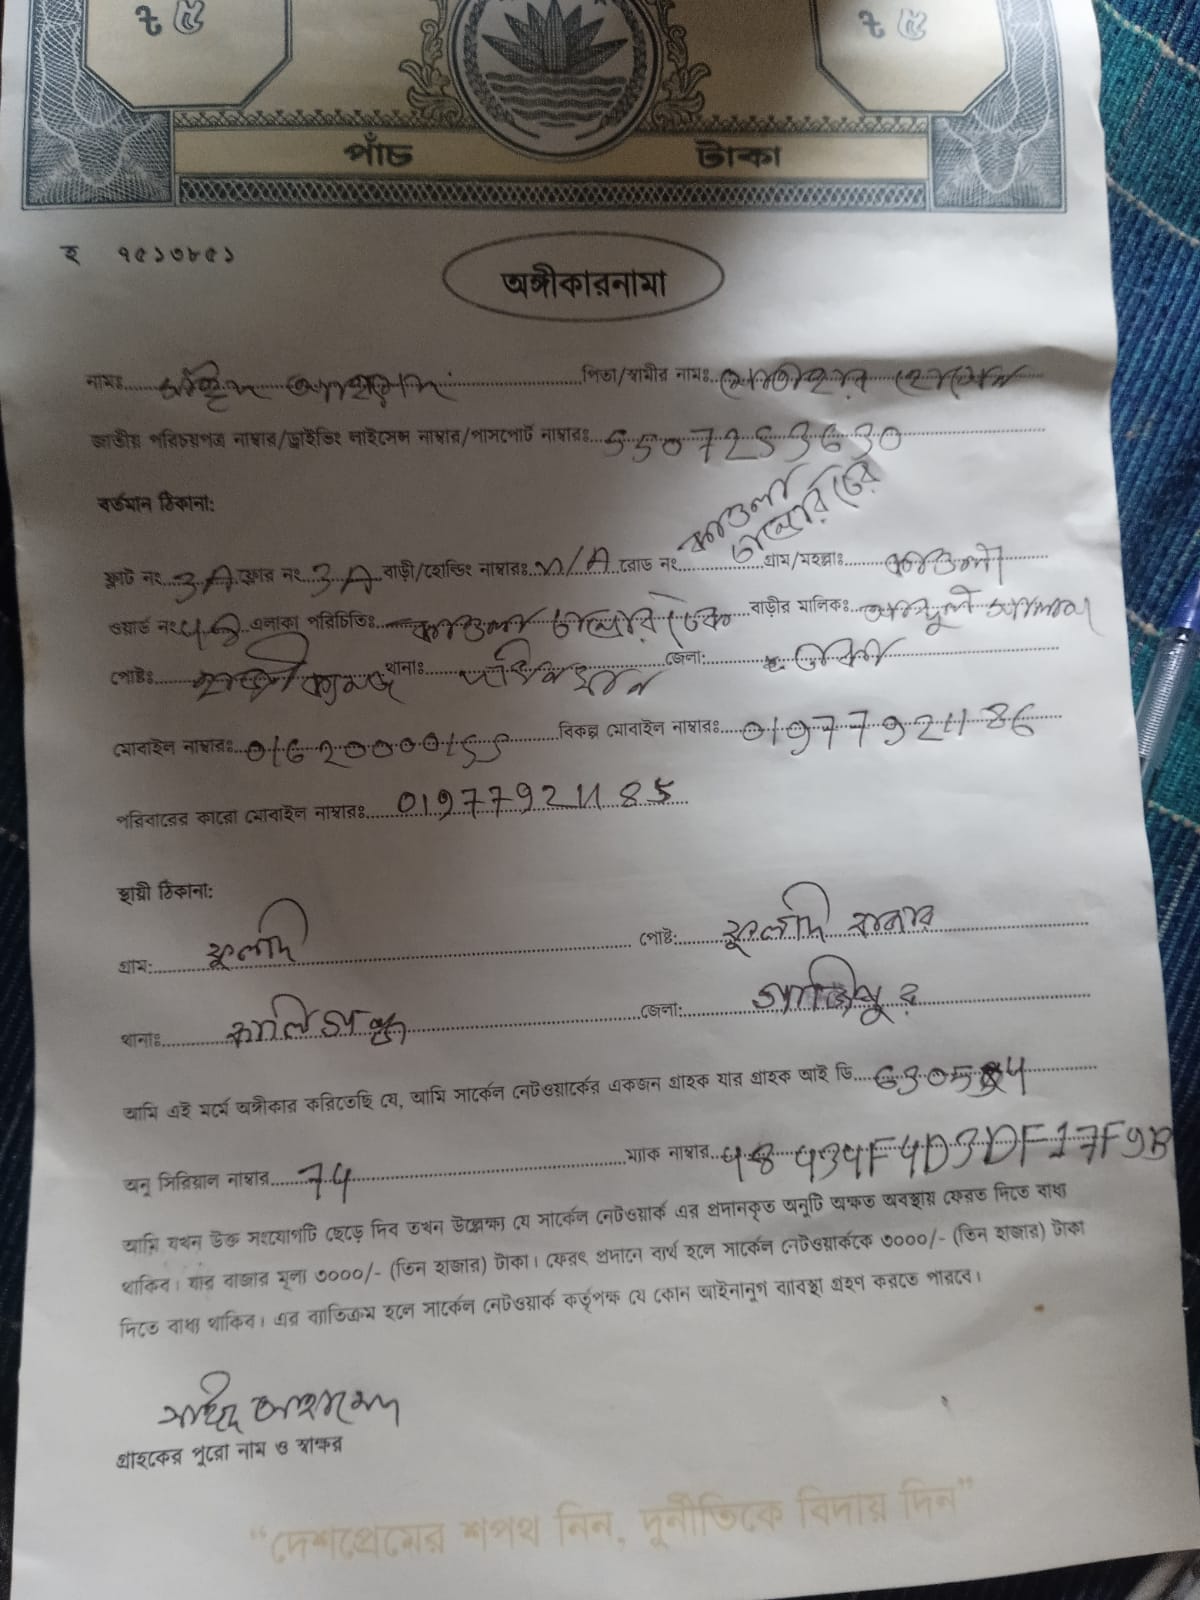 ৳ ৫ ৳ ৫
পাঁচ টাকা
হ ৭৫১৩৮৫১
অঙ্গীকারনামা
নামঃ আহমেদ পিতা/স্বামীর নামঃ হোসেন
জাতীয় পরিচয়পত্র নাম্বার/ড্রাইভিং লাইসেন্স নাম্বার/পাসপোর্ট নাম্বারঃ 5507253630
বর্তমান ঠিকানা:
কাওলা
ফ্লাট নং 3A ফ্লোর নং 3A বাড়ী/হোল্ডিং নাম্বারঃ N/A রোড নং গ্রাম/মহল্লাঃ কাওলা
ওয়ার্ড নং এলাকা পরিচিতিঃ কাওলা বাড়ীর মালিকঃ
পোষ্টঃ থানাঃ জেলা: ঢাকা
মোবাইল নাম্বারঃ বিকল্প মোবাইল নাম্বারঃ 01977921186
পরিবারের কারো মোবাইল নাম্বারঃ 01977921185
স্থায়ী ঠিকানা:
গ্রাম: ফুলদি পোষ্ট: ফুলদি বাজার
থানাঃ কালিগঞ্জ জেলা: গাজিপুর
আমি এই মর্মে অঙ্গীকার করিতেছি যে, আমি সার্কেল নেটওয়ার্কের একজন গ্রাহক যার গ্রাহক আই ডি
অনু সিরিয়াল নাম্বার 74 ম্যাক নাম্বার
আমি যখন উক্ত সংযোগটি ছেড়ে দিব তখন উল্লেক্ষ্য যে সার্কেল নেটওয়ার্ক এর প্রদানকৃত অনুটি অক্ষত অবস্থায় ফেরত দিতে বাধ্য
থাকিব। যার বাজার মূল্য ৩০০০/- (তিন হাজার) টাকা। ফেরৎ প্রদানে ব্যর্থ হলে সার্কেল নেটওয়ার্ককে ৩০০০/- (তিন হাজার) টাকা
দিতে বাধ্য থাকিব। এর ব্যতিক্রম হলে সার্কেল নেটওয়ার্ক কর্তৃপক্ষ যে কোন আইনানুগ ব্যাবস্থা গ্রহণ করতে পারবে।
আহমেদ
গ্রাহকের পুরো নাম ও স্বাক্ষর
“দেশপ্রেমের শপথ নিন, দুর্নীতিকে বিদায় দিন”